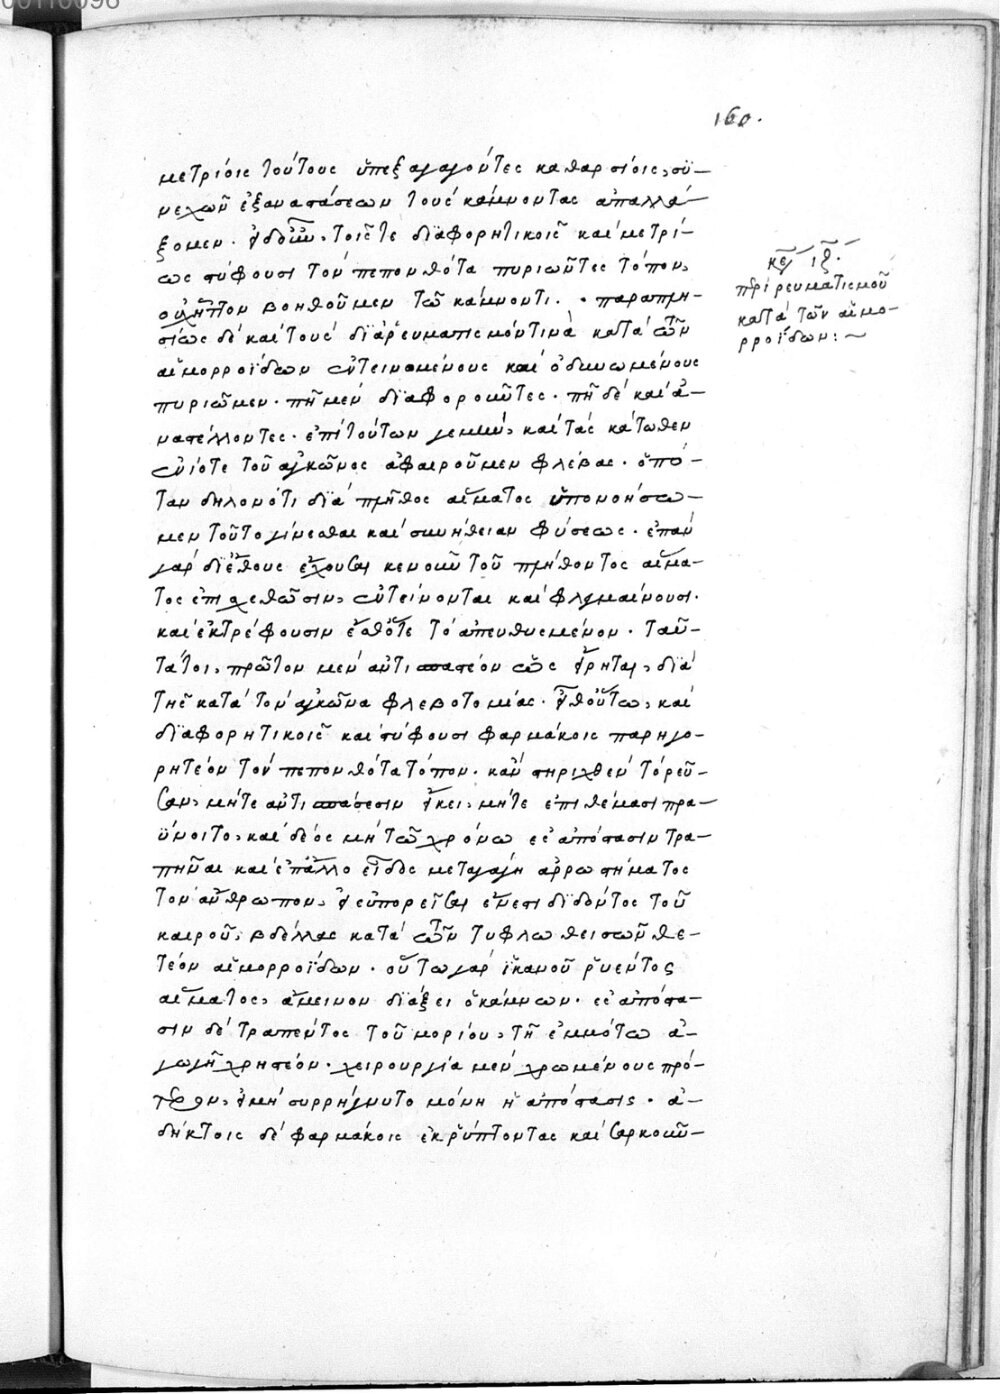 160.
μετρίοις τούτους ὑπεξαγαγόντες καθαρσίοις, συ-
νεχῶν ἐξαναστάσεων τοὺς κάμνοντας ἀπαλλά-
ξομεν. τοῖς τε διαφορητικοῖς καὶ μετρί-
ως στύφουσι τὸν πεπονθότα πυριῶντες τόπον,
οὐχ ἧττον βοηθοῦμεν τῷ κάμνοντι. παραπλη-
σίως δὲ καὶ τοὺς διὰ ῥευματισμόν τινα κατὰ τῶν
αἱμορροΐδων ἐντεινομένους καὶ ὀδυνωμένους
πυριῶμεν. πῆ μὲν διαφοροῦντες. πῆ δὲ καὶ ἀ-
ναστέλλοντες. ἐπὶ τούτων καὶ τὰς κάτωθεν
ἐνίοτε τοῦ ἀγκῶνος ἀφαιροῦμεν φλέβας. ὁπό-
ταν δηλονότι διὰ πλῆθος αἵματος ὑπονοήσω-
μεν τοῦτο γίνεσθαι καὶ συνήθειαν φύσεως. ἐπὰν
γὰρ δι' ἔθους ἔχουσαι κενοῦν τοῦ πλήθοντος αἵμα-
τος ἐπισχεθῶσιν, ἐντείνονται καὶ φλεγμαίνουσι.
καὶ ἐκτρέφουσιν ἔσθ' ὅτε τὸ ἀπευθυσμένον. ταῦ-
τά τοι, πρῶτον μὲν ἀντισπαστέον ὡς εἴρηται, διὰ
τῆς κατὰ τὸν ἀγκῶνα φλεβοτομίας. εἶθ' οὕτω, καὶ
διαφορητικοῖς καὶ στύφουσι φαρμάκοις παρηγο-
ρητέον τὸν πεπονθότα τόπον. κἂν στηριχθὲν τὸ ῥεῦ-
μα, μήτε ἀντισπάσεσιν εἴκει, μήτε ἐπιθέμασι πρα-
ΰνοιτο, καὶ δέος μὴ τῷ χρόνῳ ἐς ἀπόστασιν τρα-
πῆναι καὶ ἐπ' ἄλλο εἶδος μεταγάγῃ ἀρρωστήματος
τὸν ἄνθρωπον, εἰ εὐπορεῖσαι ἔνεστι διδόντος τοῦ
καιροῦ, βδέλλας κατὰ τῶν τυφλωθεισῶν θε-
τέον αἱμορροΐδων. οὕτω γὰρ ἱκανοῦ ῥυέντος
αἵματος, ἄμεινον διάξει ὁ κάμνων. ἐς ἀπόστα-
σιν δὲ τραπέντος τοῦ μορίου, τῇ ἐμμότῳ ἀ-
γωγῇ χρηστέον. χειρουργίᾳ μὲν χρωμένους πρό-
τερον, εἰ μὴ συρρήγνυτο μόνη ἡ ἀπόστασις. ἀ-
δήκτοις δὲ φαρμάκοις ἐκρύπτοντας καὶ σαρκοῦν-
κεφ ιζ.
περὶ ῥευματισμοῦ
κατὰ τῶν αἱμο-
ρροΐδων:~